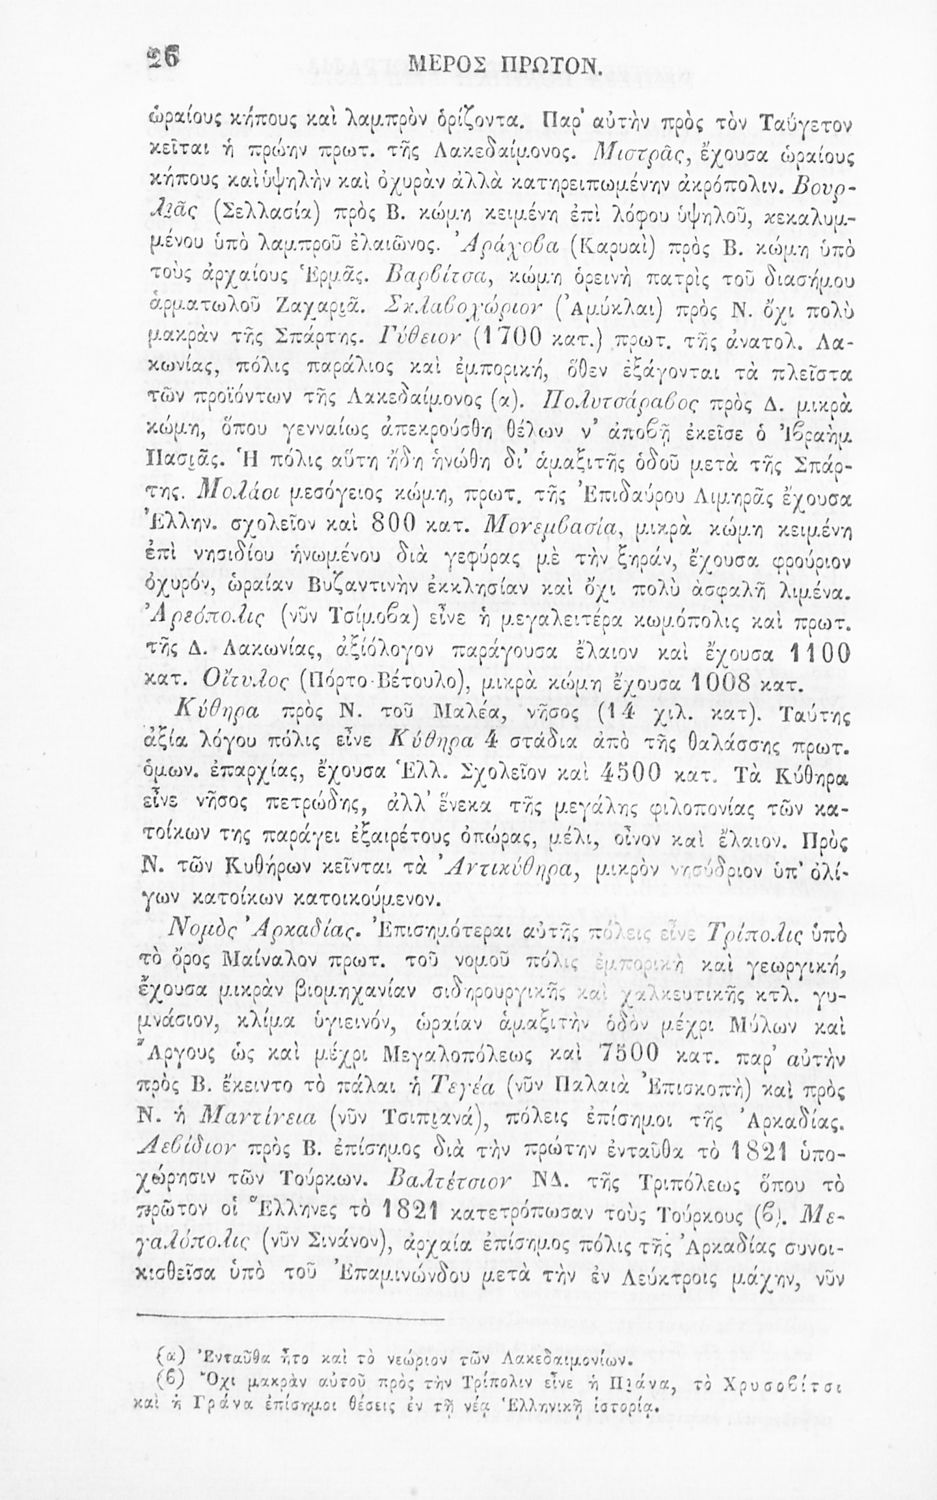 26
ΜΕΡΟΣ ΠΡΩΤΟΝ.
ὡραίους κήπους καὶ λαμπρὸν ὁρίζοντα. Παρ' αὐτὴν πρὸς τὸν Ταΰγετον
κεῖται ἡ πρώην πρωτ. τῆς Λακεδαίμονος. Μιστρᾶς, ἔχουσα ὡραίους
κήπους καὶ ὑψηλὴν καὶ ὀχυρὰν ἀλλὰ κατηρειπωμένην ἀκρόπολιν. Βουρ-
λιᾶς (Σελλασία) πρὸς Β. κώμη κειμένη ἐπὶ λόφου ὑψηλοῦ, κεκαλυμ-
μένου ὑπὸ λαμπροῦ ἐλαιῶνος. Ἀράχοβα (Καρυαὶ) πρὸς Β. κώμη ὑπὸ
τοὺς ἀρχαίους Ἑρμᾶς. Βαρβίτσα, κώμη ὀρεινὴ πατρὶς τοῦ διασήμου
ἁρματωλοῦ Ζαχαριᾶ. Σκλαβοχώριον (Ἀμύκλαι) πρὸς Ν. ὄχι πολὺ
μακρὰν τῆς Σπάρτης. Γύθειον (1700 κατ.) πρωτ. τῆς ἀνατολ. Λα-
κωνίας, πόλις παράλιος καὶ ἐμπορική, ὅθεν ἐξάγονται τὰ πλεῖστα
τῶν προϊόντων τῆς Λακεδαίμονος (α). Πολυτσάραβος πρὸς Δ. μικρὰ
κώμη, ὅπου γενναίως ἀπεκρούσθη θέλων ν' ἀποβῇ ἐκεῖσε ὁ Ἰβραὴμ
Πασιᾶς. Ἡ πόλις αὕτη ἤδη ἡνώθη δι' ἁμαξιτῆς ὁδοῦ μετὰ τῆς Σπάρ-
της. Μολάοι μεσόγειος κώμη, πρωτ. τῆς Ἐπιδαύρου Λιμηρᾶς ἔχουσα
Ἑλλην. σχολεῖον καὶ 800 κατ. Μονεμβασία, μικρὰ κώμη κειμένη
ἐπὶ νησιδίου ἡνωμένου διὰ γεφύρας μὲ τὴν ξηράν, ἔχουσα φρούριον
ὀχυρόν, ὡραίαν Βυζαντινὴν ἐκκλησίαν καὶ ὄχι πολὺ ἀσφαλῆ λιμένα.
Ἀρεόπολις (νῦν Τσίμοβα) εἶνε ἡ μεγαλειτέρα κωμόπολις καὶ πρωτ.
τῆς Δ. Λακωνίας, ἀξιόλογον παράγουσα ἔλαιον καὶ ἔχουσα 1100
κατ. Οἴτυλος (Πόρτο-Βέτουλο), μικρὰ κώμη ἔχουσα 1008 κατ.
Κύθηρα πρὸς Ν. τοῦ Μαλέα, νῆσος (14 χιλ. κατ). Ταύτης
ἀξία λόγου πόλις εἶνε Κύθηρα 4 στάδια ἀπὸ τῆς θαλάσσης πρωτ.
ὁμων. ἐπαρχίας, ἔχουσα Ἑλλ. Σχολεῖον καὶ 4500 κατ. Τὰ Κύθηρα
εἶνε νῆσος πετρώδης, ἀλλ' ἕνεκα τῆς μεγάλης φιλοπονίας τῶν κα-
τοίκων της παράγει ἐξαιρέτους ὀπώρας, μέλι, οἶνον καὶ ἔλαιον. Πρὸς
Ν. τῶν Κυθήρων κεῖνται τὰ Ἀντικύθηρα, μικρὸν νησύδριον ὑπ' ὀλί-
γων κατοίκων κατοικούμενον.
Νομὸς Ἀρκαδίας. Ἐπισημότεραι αὐτῆς πόλεις εἶνε Τρίπολις ὑπὸ
τὸ ὄρος Μαίναλον πρωτ. τοῦ νομοῦ πόλις ἐμπορικὴ καὶ γεωργική,
ἔχουσα μικρὰν βιομηχανίαν σιδηρουργικῆς καὶ χαλκευτικῆς κτλ. γυ-
μνάσιον, κλίμα ὑγιεινόν, ὡραίαν ἁμαξιτὴν ὁδὸν μέχρι Μύλων καὶ
Ἄργους ὡς καὶ μέχρι Μεγαλοπόλεως καὶ 7500 κατ. παρ' αὐτὴν
πρὸς Β. ἔκειντο τὸ πάλαι ἡ Τεγέα (νῦν Παλαιὰ Ἐπισκοπὴ) καὶ πρὸς
Ν. ἡ Μαντίνεια (νῦν Τσιπιανά), πόλεις ἐπίσημοι τῆς Ἀρκαδίας.
Λεβίδιον πρὸς Β. ἐπίσημος διὰ τὴν πρώτην ἐνταῦθα τὸ 1821 ὑπο-
χώρησιν τῶν Τούρκων. Βαλτέτσιον ΝΔ. τῆς Τριπόλεως ὅπου τὸ
πρῶτον οἱ Ἕλληνες τὸ 1821 κατετρόπωσαν τοὺς Τούρκους (β). Με-
γαλόπολις (νῦν Σινάνον), ἀρχαία ἐπίσημος πόλις τῆς Ἀρκαδίας συνοι-
κισθεῖσα ὑπὸ τοῦ Ἐπαμινώνδου μετὰ τὴν ἐν Λεύκτροις μάχην, νῦν
(α) Ἐνταῦθα ἦτο καὶ τὸ νεώριον τῶν Λακεδαιμονίων.
(β) Ὄχι μακρὰν αὐτοῦ πρὸς τὴν Τρίπολιν εἶνε ἡ Πιάνα, τὸ Χρυσοβίτσι
καὶ ἡ Γράνα ἐπίσημοι θέσεις ἐν τῇ νέᾳ Ἑλληνικῇ ἱστορίᾳ.